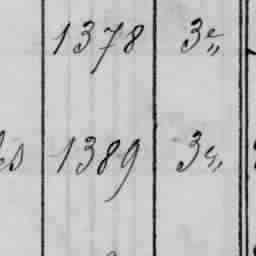 1378 3e„
1389 3e„